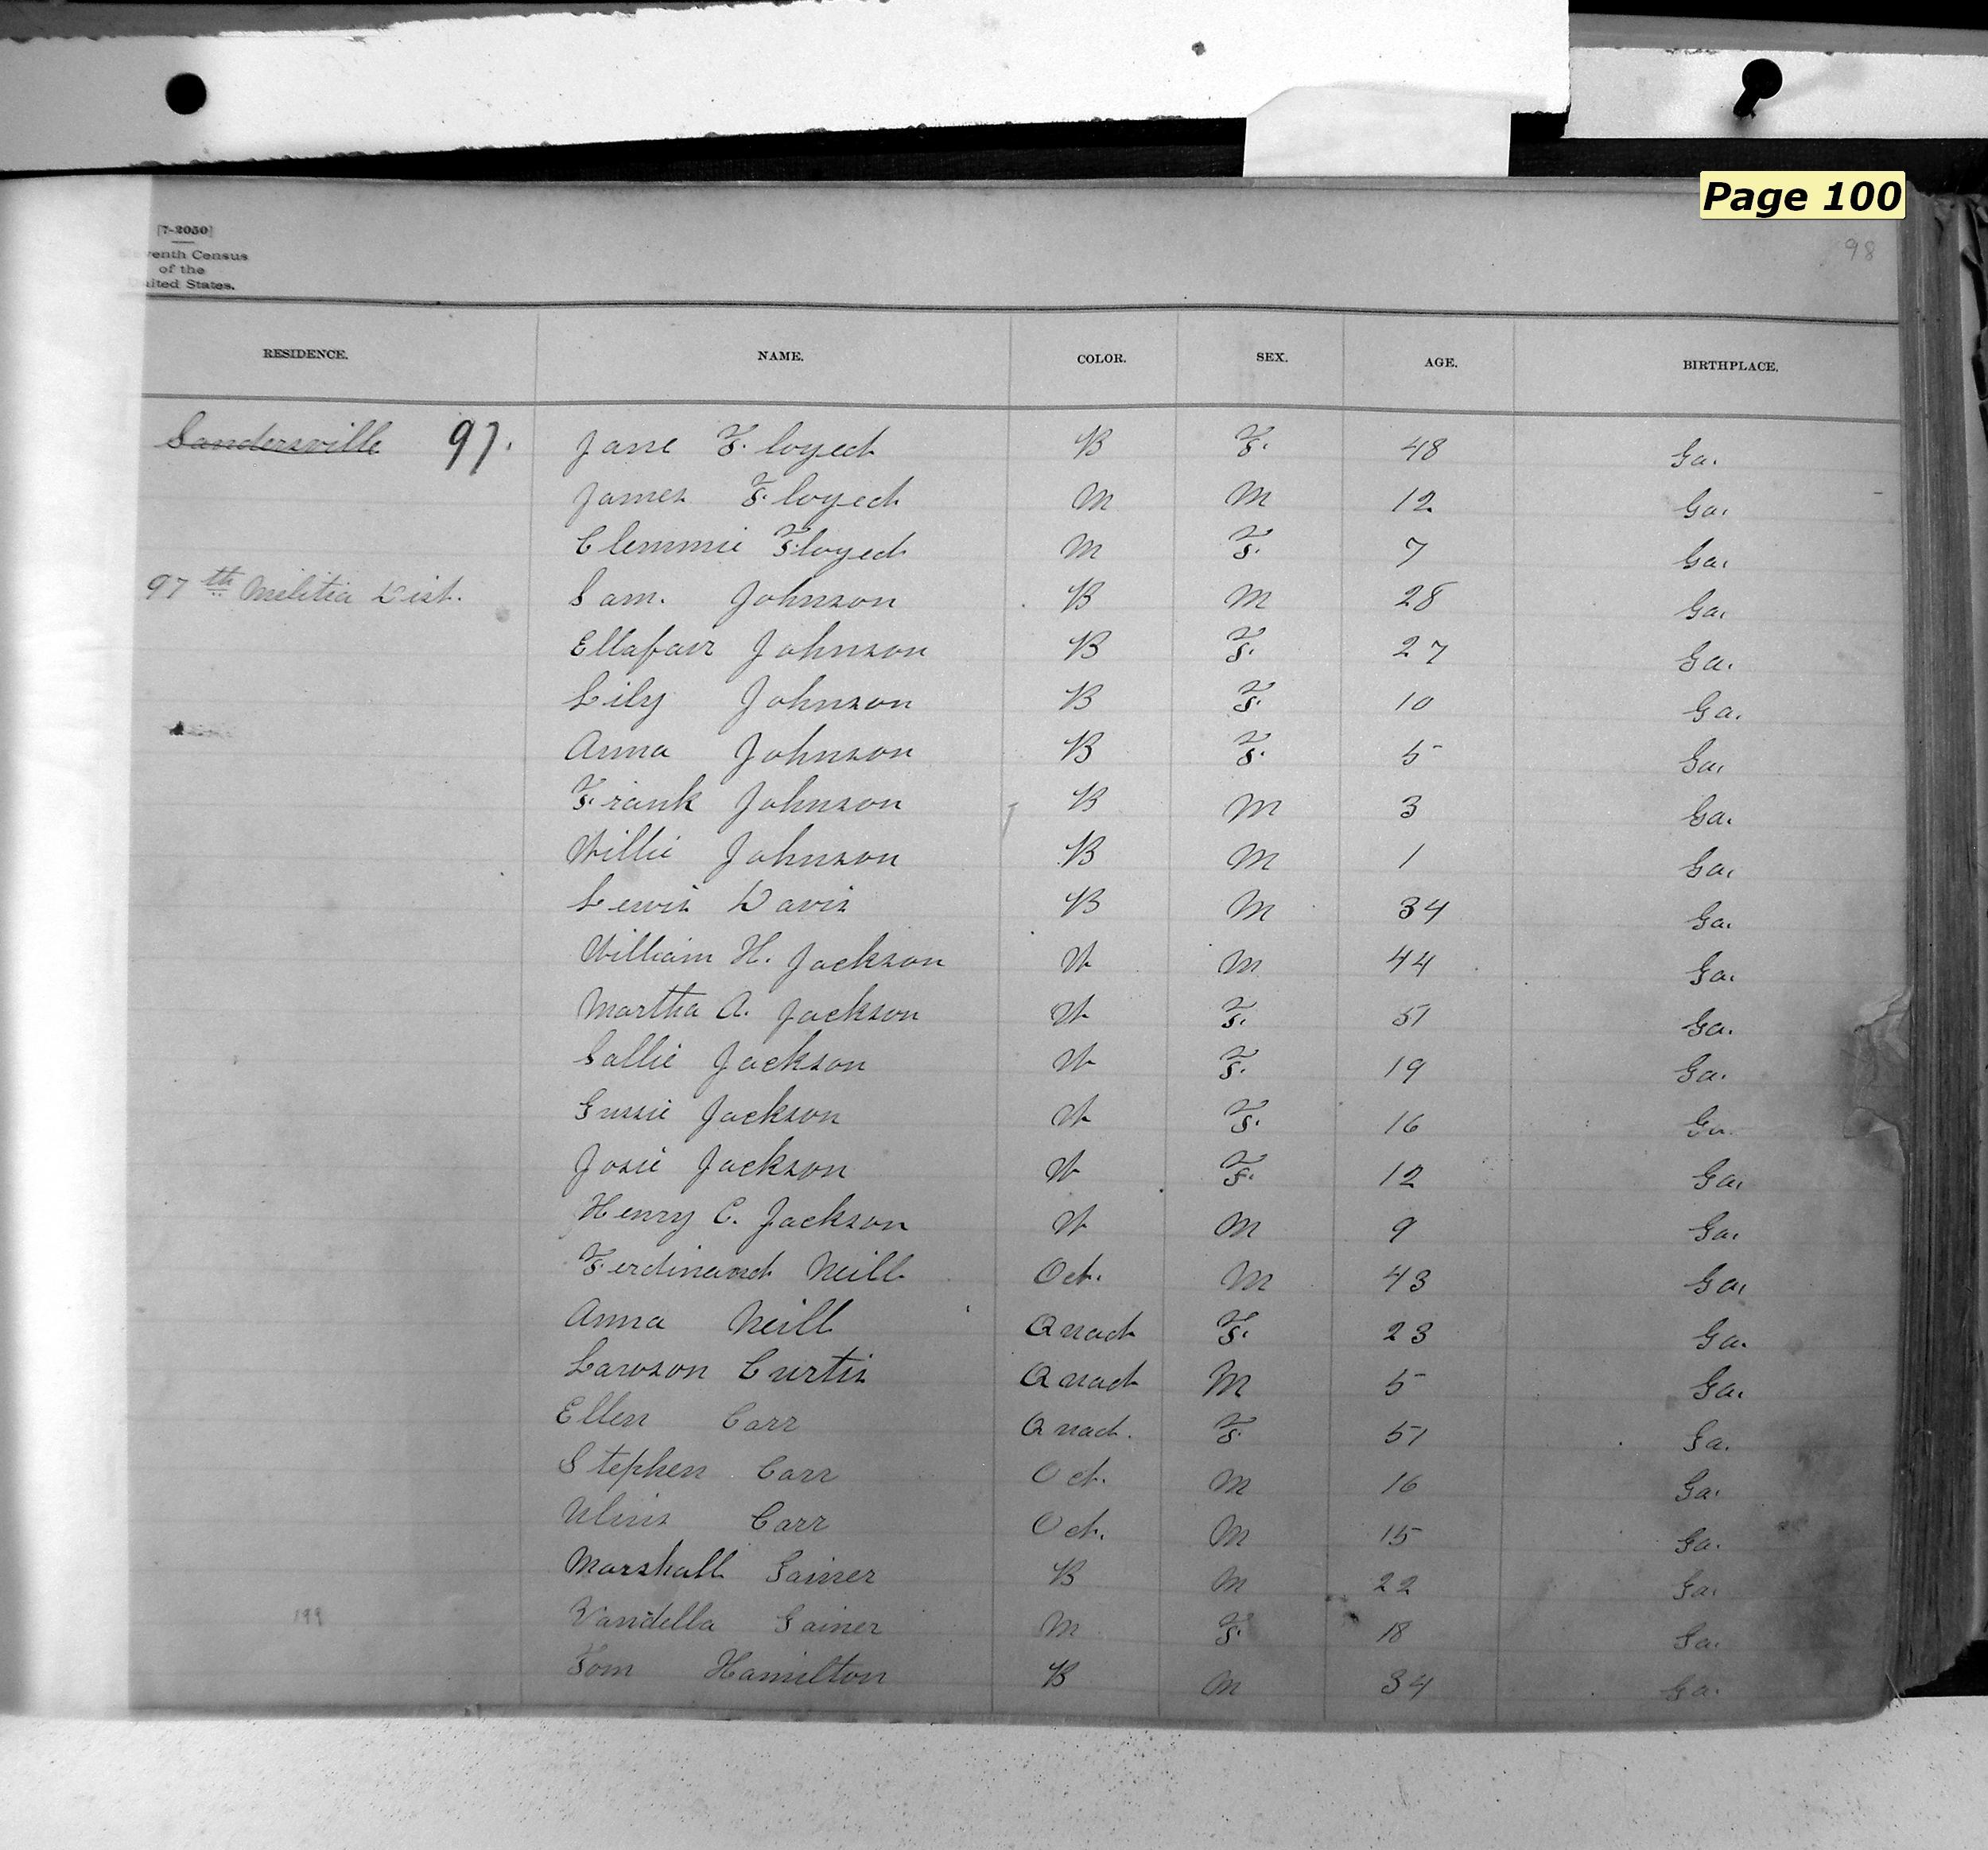 Page 100
98
[7-2050]
Eleventh Census
of the
United States.
RESIDENCE. NAME. COLOR. SEX. AGE. BIRTHPLACE.
Sandersville 97. Jane Floyed B F. 48 Ga.
James Floyed M M 12 Ga.
Clemmie Floyed M F. 7 Ga.
97th Militia Dist. Sam. Johnson B M 28 Ga.
Ellafair Johnson B F. 27 Ga.
Lily Johnson B F. 10 Ga.
Anna Johnson B F. 5 Ga.
Frank Johnson B M 3 Ga.
Willie Johnson B M 1 Ga.
Lewis Davis B M 34 Ga.
William H. Jackson W M 44 Ga.
Martha A. Jackson W F. 51 Ga.
Sallie Jackson W F. 19 Ga.
Gussie Jackson W F. 16 Ga.
Josie Jackson W F. 12 Ga.
Henry C. Jackson W M 9 Ga.
Ferdinand Neill Oct. M 43 Ga.
Anna Neill Quad F. 23 Ga.
Lawson Curtis Quad M 5 Ga.
Ellen Carr Quad. F. 51 Ga.
Stephen Carr Oct. M 16 Ga.
Carr Oct. M 15 Ga.
Marshall Gainer B M 22 Ga.
199 Vandella Gainer M F. 18 Ga.
Tom Hamilton B M 34 Ga.